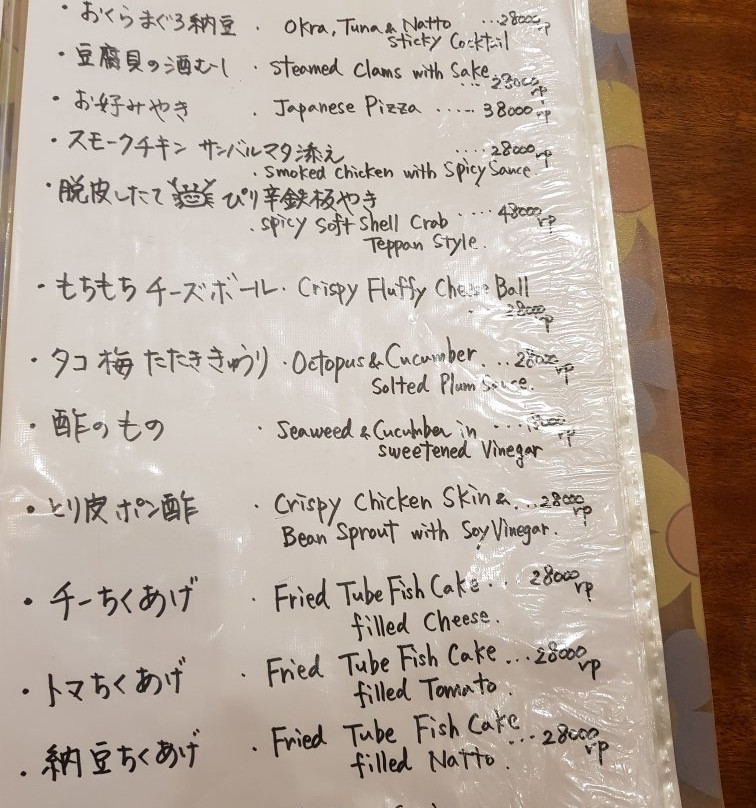 ・おくらまぐろ納豆 ・ Okra, Tuna & Natto ...28000rp
Sticky Cocktail
・豆腐貝の酒むし ・ Steamed Clams with Sake
... 28000rp
・お好みやき ・ Japanese Pizza ..... 38000rp
・スモークチキン サンバルマタ添え .... 28000rp
・Smoked Chicken with Spicy Sauce.
・脱皮したて ぴり辛鉄板やき
・Spicy Soft Shell Crab .... 48000rp
Teppan Style.
・もちもち チーズボール・Crispy Fluffy Cheese Ball
28000rp
・タコ梅 たたききゅうり・Octopus & Cucumber ... 28000rp
Solted Plum Sauce.
・酢のもの ・ Seaweed & Cucumber in ....
rp
sweetened Vinegar
・とり皮 ポン酢 ・ Crispy Chicken Skin & ...28000rp
Bean Sprout with Soy Vinegar.
・チーちくあげ ・ Fried Tube Fish Cake ... 28000rp
filled Cheese.
・トマちくあげ ・ Fried Tube Fish Cake ...28000rp
filled Tomato.
・納豆ちくあげ ・ Fried Tube Fish Cake
... 28000rp
filled Natto.